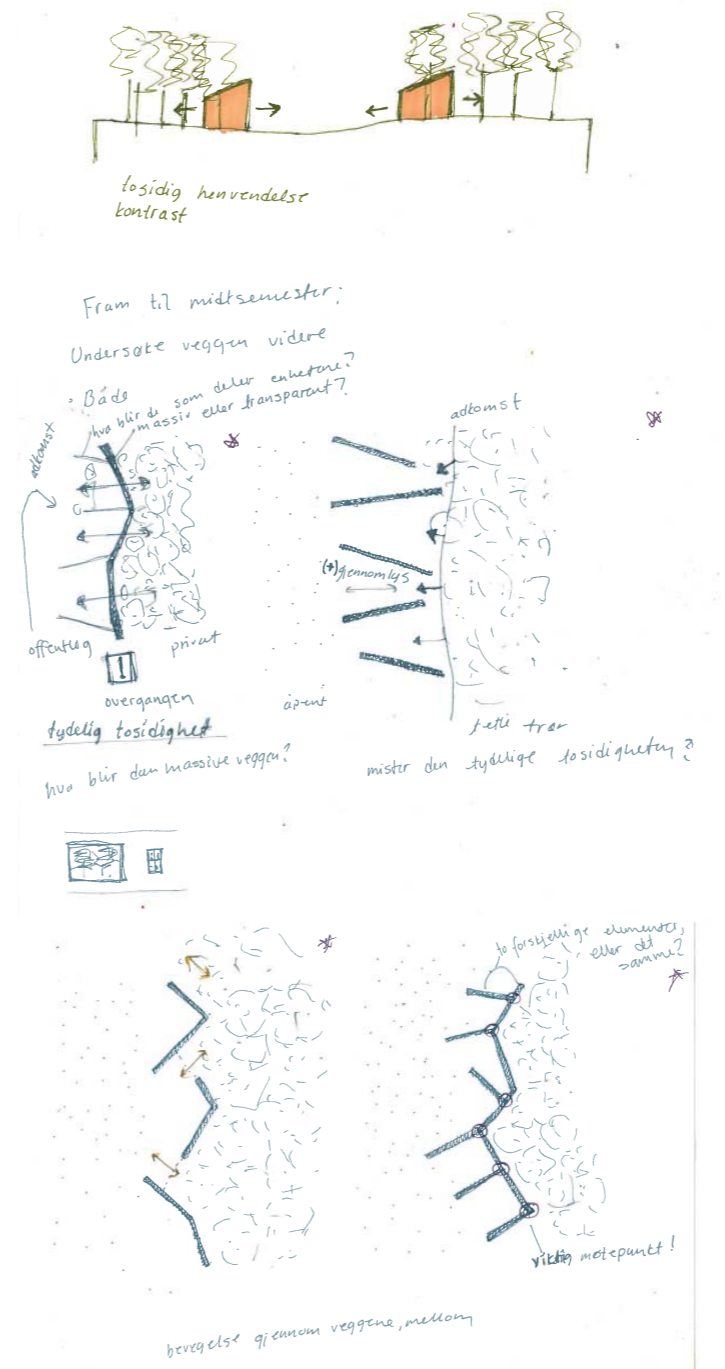 tosidig henvendelse
kontrast
Fram til midtsemester:
Undersøke veggen videre
• Både
hva blir de som deler enhetene?
massiv eller transparent?
adkomst
adkomst
(+) gjennomlys
offentlig
privat
!
overgangen
åpent
tydelig tosidighet
tette trær
hva blir den massive veggen?
mister den tydelige tosidigheten?
to forskjellige elementer,
eller det
samme?
viktig møtepunkt!
bevegelse gjennom veggene, mellom